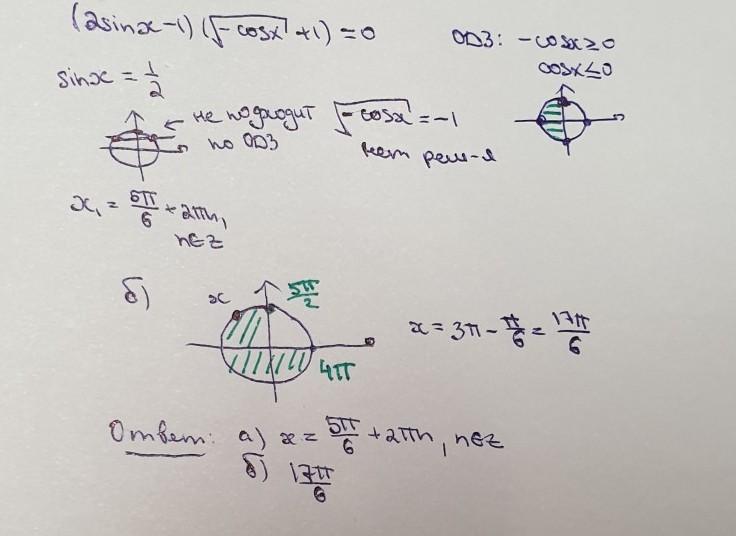 (2sinx-1)(√-cosx+1)=0
ОДЗ: -cosx≥0
cosx≤0
sinx=1/2
не подходит
по ОДЗ
√-cosx=-1
нет реш-я
x₁=5π/6+2πn,
n∈z
б)
x
5π/2
4π
x=3π-π/6=17π/6
Ответ: а) x=5π/6+2πn, n∈z
б) 17π/6